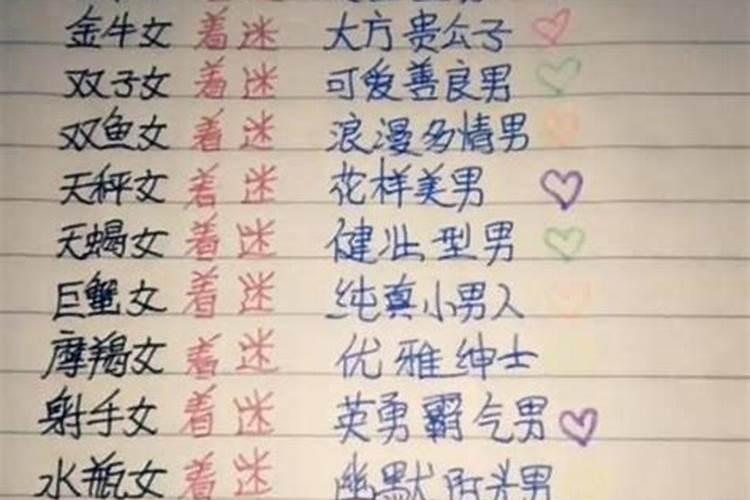 金牛女 着迷 大方贵公子
双子女 着迷 可爱善良男
双鱼女 着迷 浪漫多情男
天秤女 着迷 花样美男
天蝎女 着迷 健壮型男
巨蟹女 着迷 纯真小男人
摩羯女 着迷 优雅绅士
射手女 着迷 英勇霸气男
水瓶女 着迷 幽默男